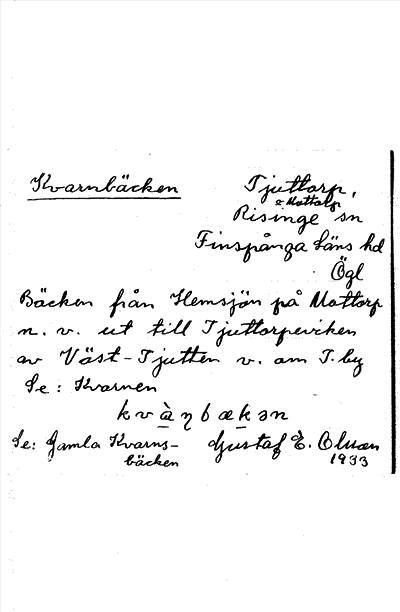 Kvarnbäcken
Tjuttorp,
o Mottorp
Risinge sn
Finspånga läns hd
Ögl
Bäcken från Hemsjön på Mottorp
n. v. ut till Tjuttorpeviken
av Väst-Tjutten v. om T. by
Se: Kvarnen
kvàɳbækən
Se: Gamla Kvarns-
bäcken
Gustaf E. Olsson
1933